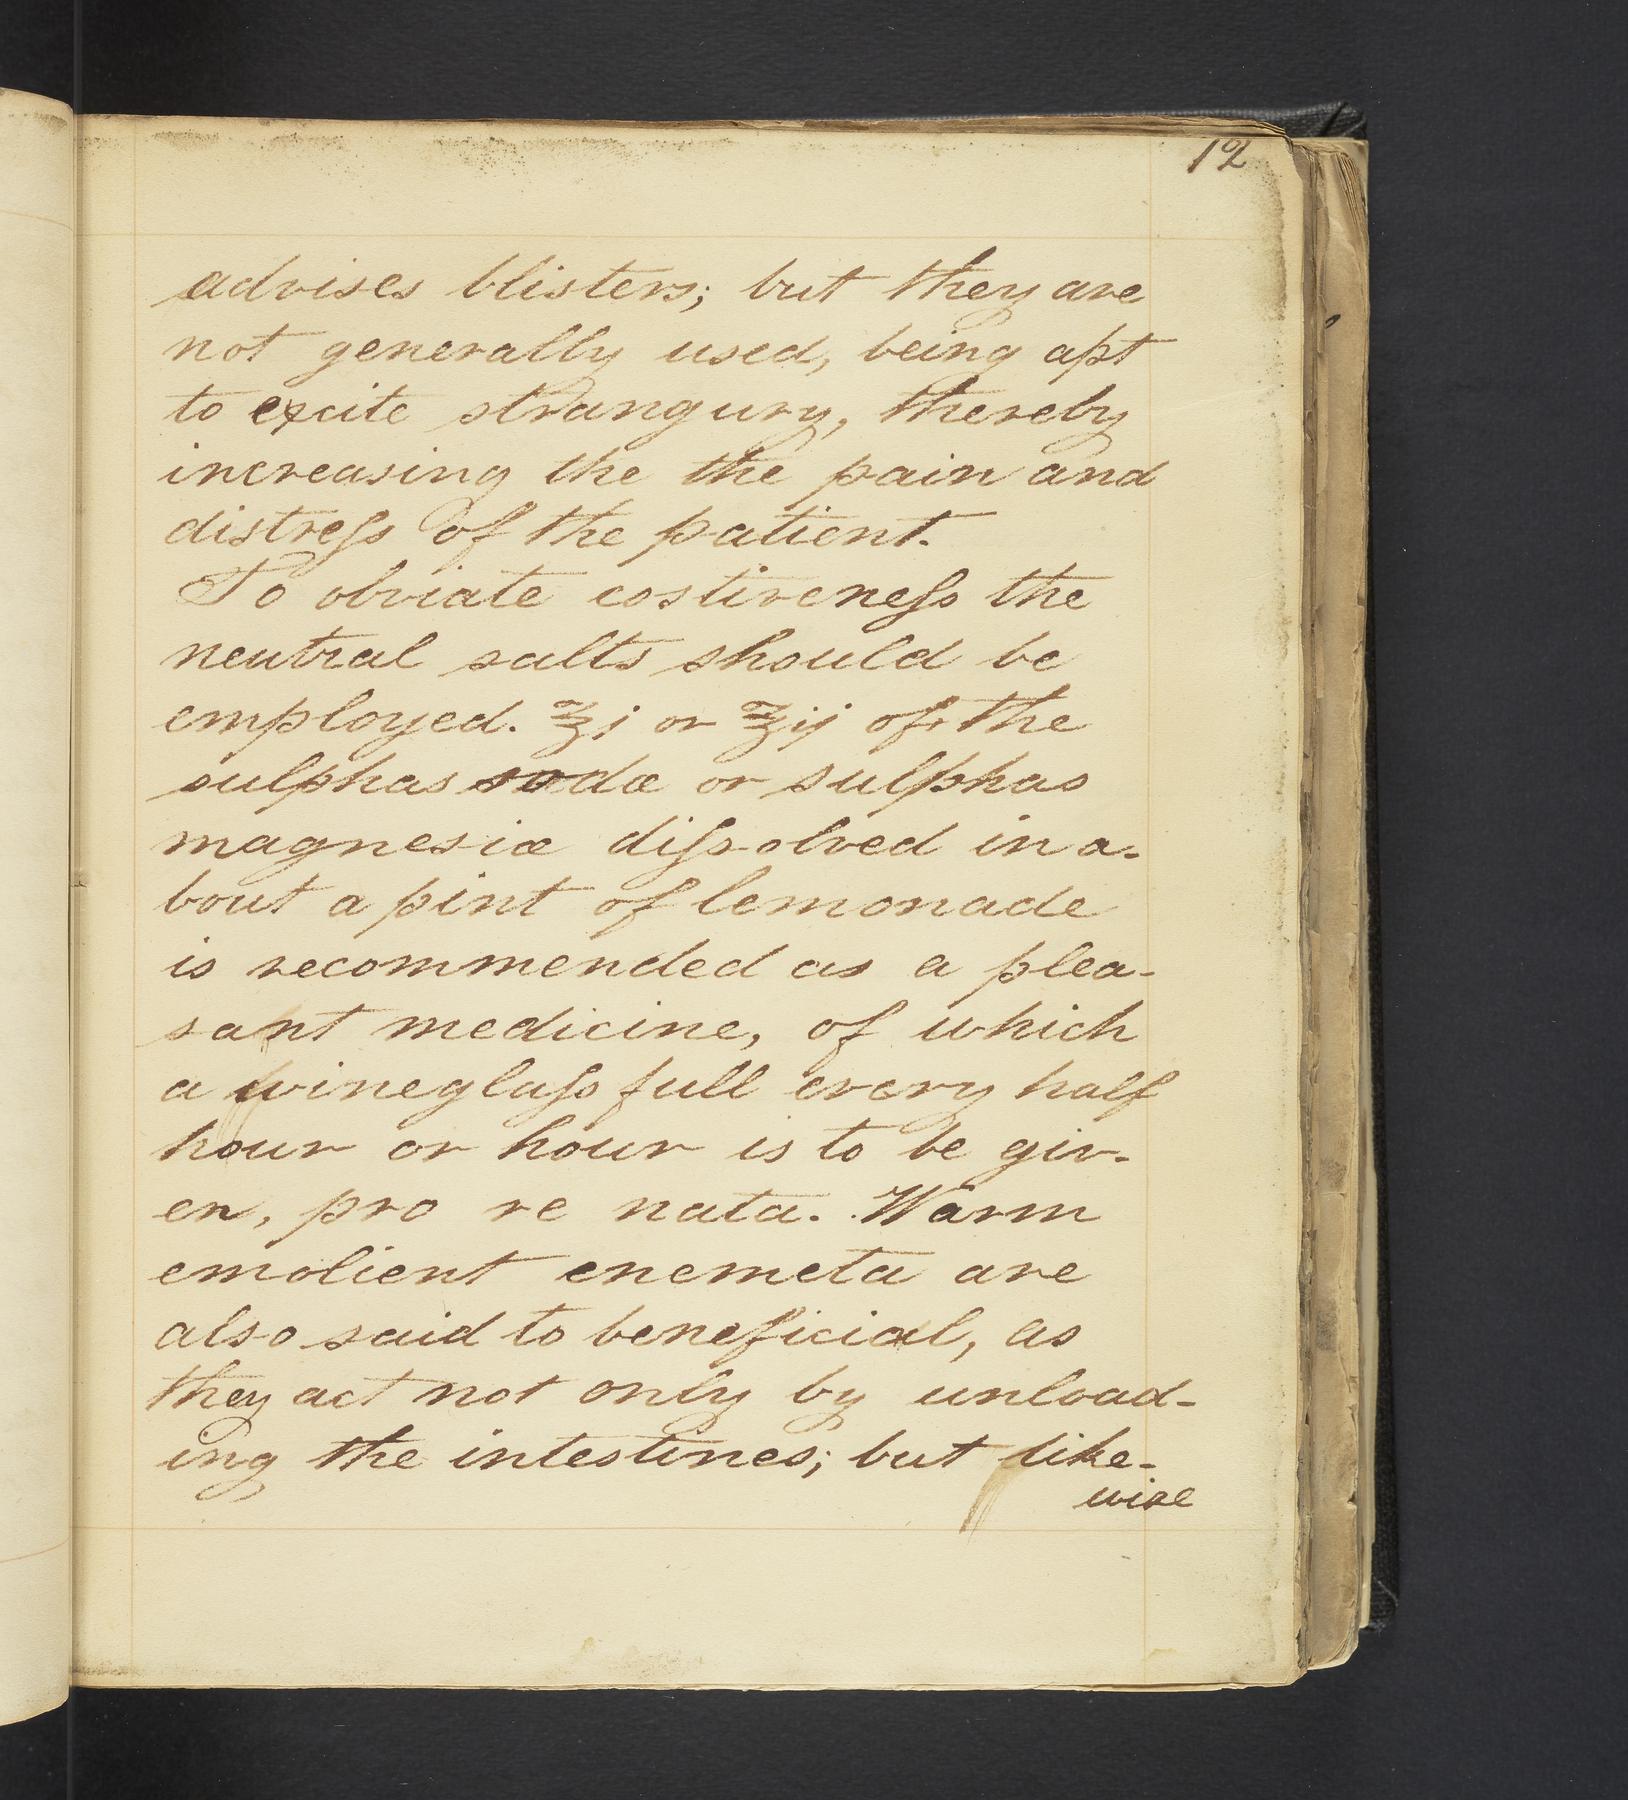 12
advises blisters; but they are
not generally used, being apt
to excite strangury, thereby
increasing the the pain and
distreſs of the patient.
To obviate costiveneſs the
neutral salts should be
employed. ℥j or ℥ij of the
sulphas sodæ or sulphas
magnesiæ diſsolved in a-
bout a pint of lemonade
is recommended as a plea-
sant medicine, of which
a wineglaſs full every half
hour or hour is to be giv-
en, pro re nata. Warm
emolient enemeta are
also said to beneficial, as
they act not only by unload-
ing the intestines; but like-
wise